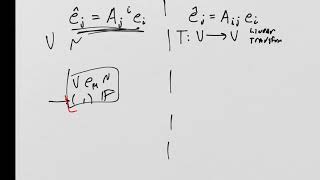 ê_j = A_j^i e_i
V N
V e_M N
( , ) IP
ê_j = A_ij e_i
T: V → V Linear
Transform